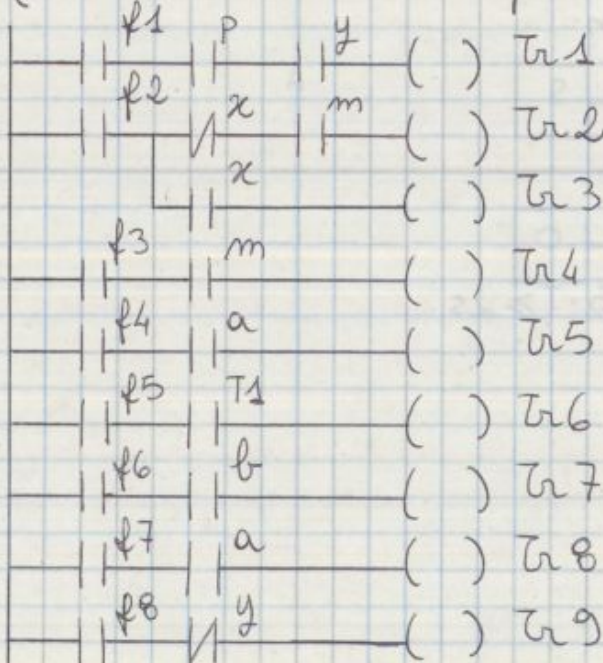 f1 p y Tr1
f2 x m Tr2
x Tr3
f3 m Tr4
f4 a Tr5
f5 T1 Tr6
f6 b Tr7
f7 a Tr8
f8 y Tr9